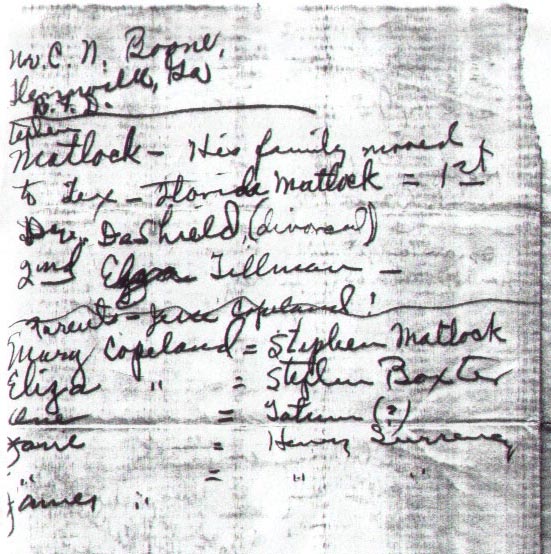 Mr. C. N. Boone,
Ga
R. F. D.
Matlock - His family moved
to Tex - Florida Matlock = 1st
DaShield, (divorced)
2nd Eliza Tillman -
Parents = Copeland!
Mary Copeland = Stephen Matlock
Eliza " = Stephen Baxter
= Tatum (?)
Jane = Henry Surrency
" = " "
James "